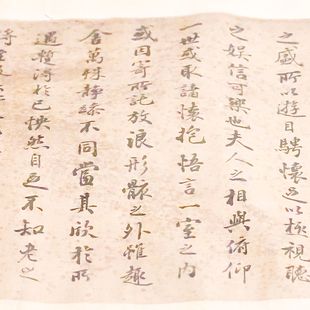 之盛所以遊目騁懷足以極視聽
之娛信可樂也夫人之相與俯仰
一世或取諸懷抱悟言一室之內
或因寄所託放浪形骸之外雖趣
舍萬殊靜躁不同當其欣於所
遇暫得於己怏然自足不知老之